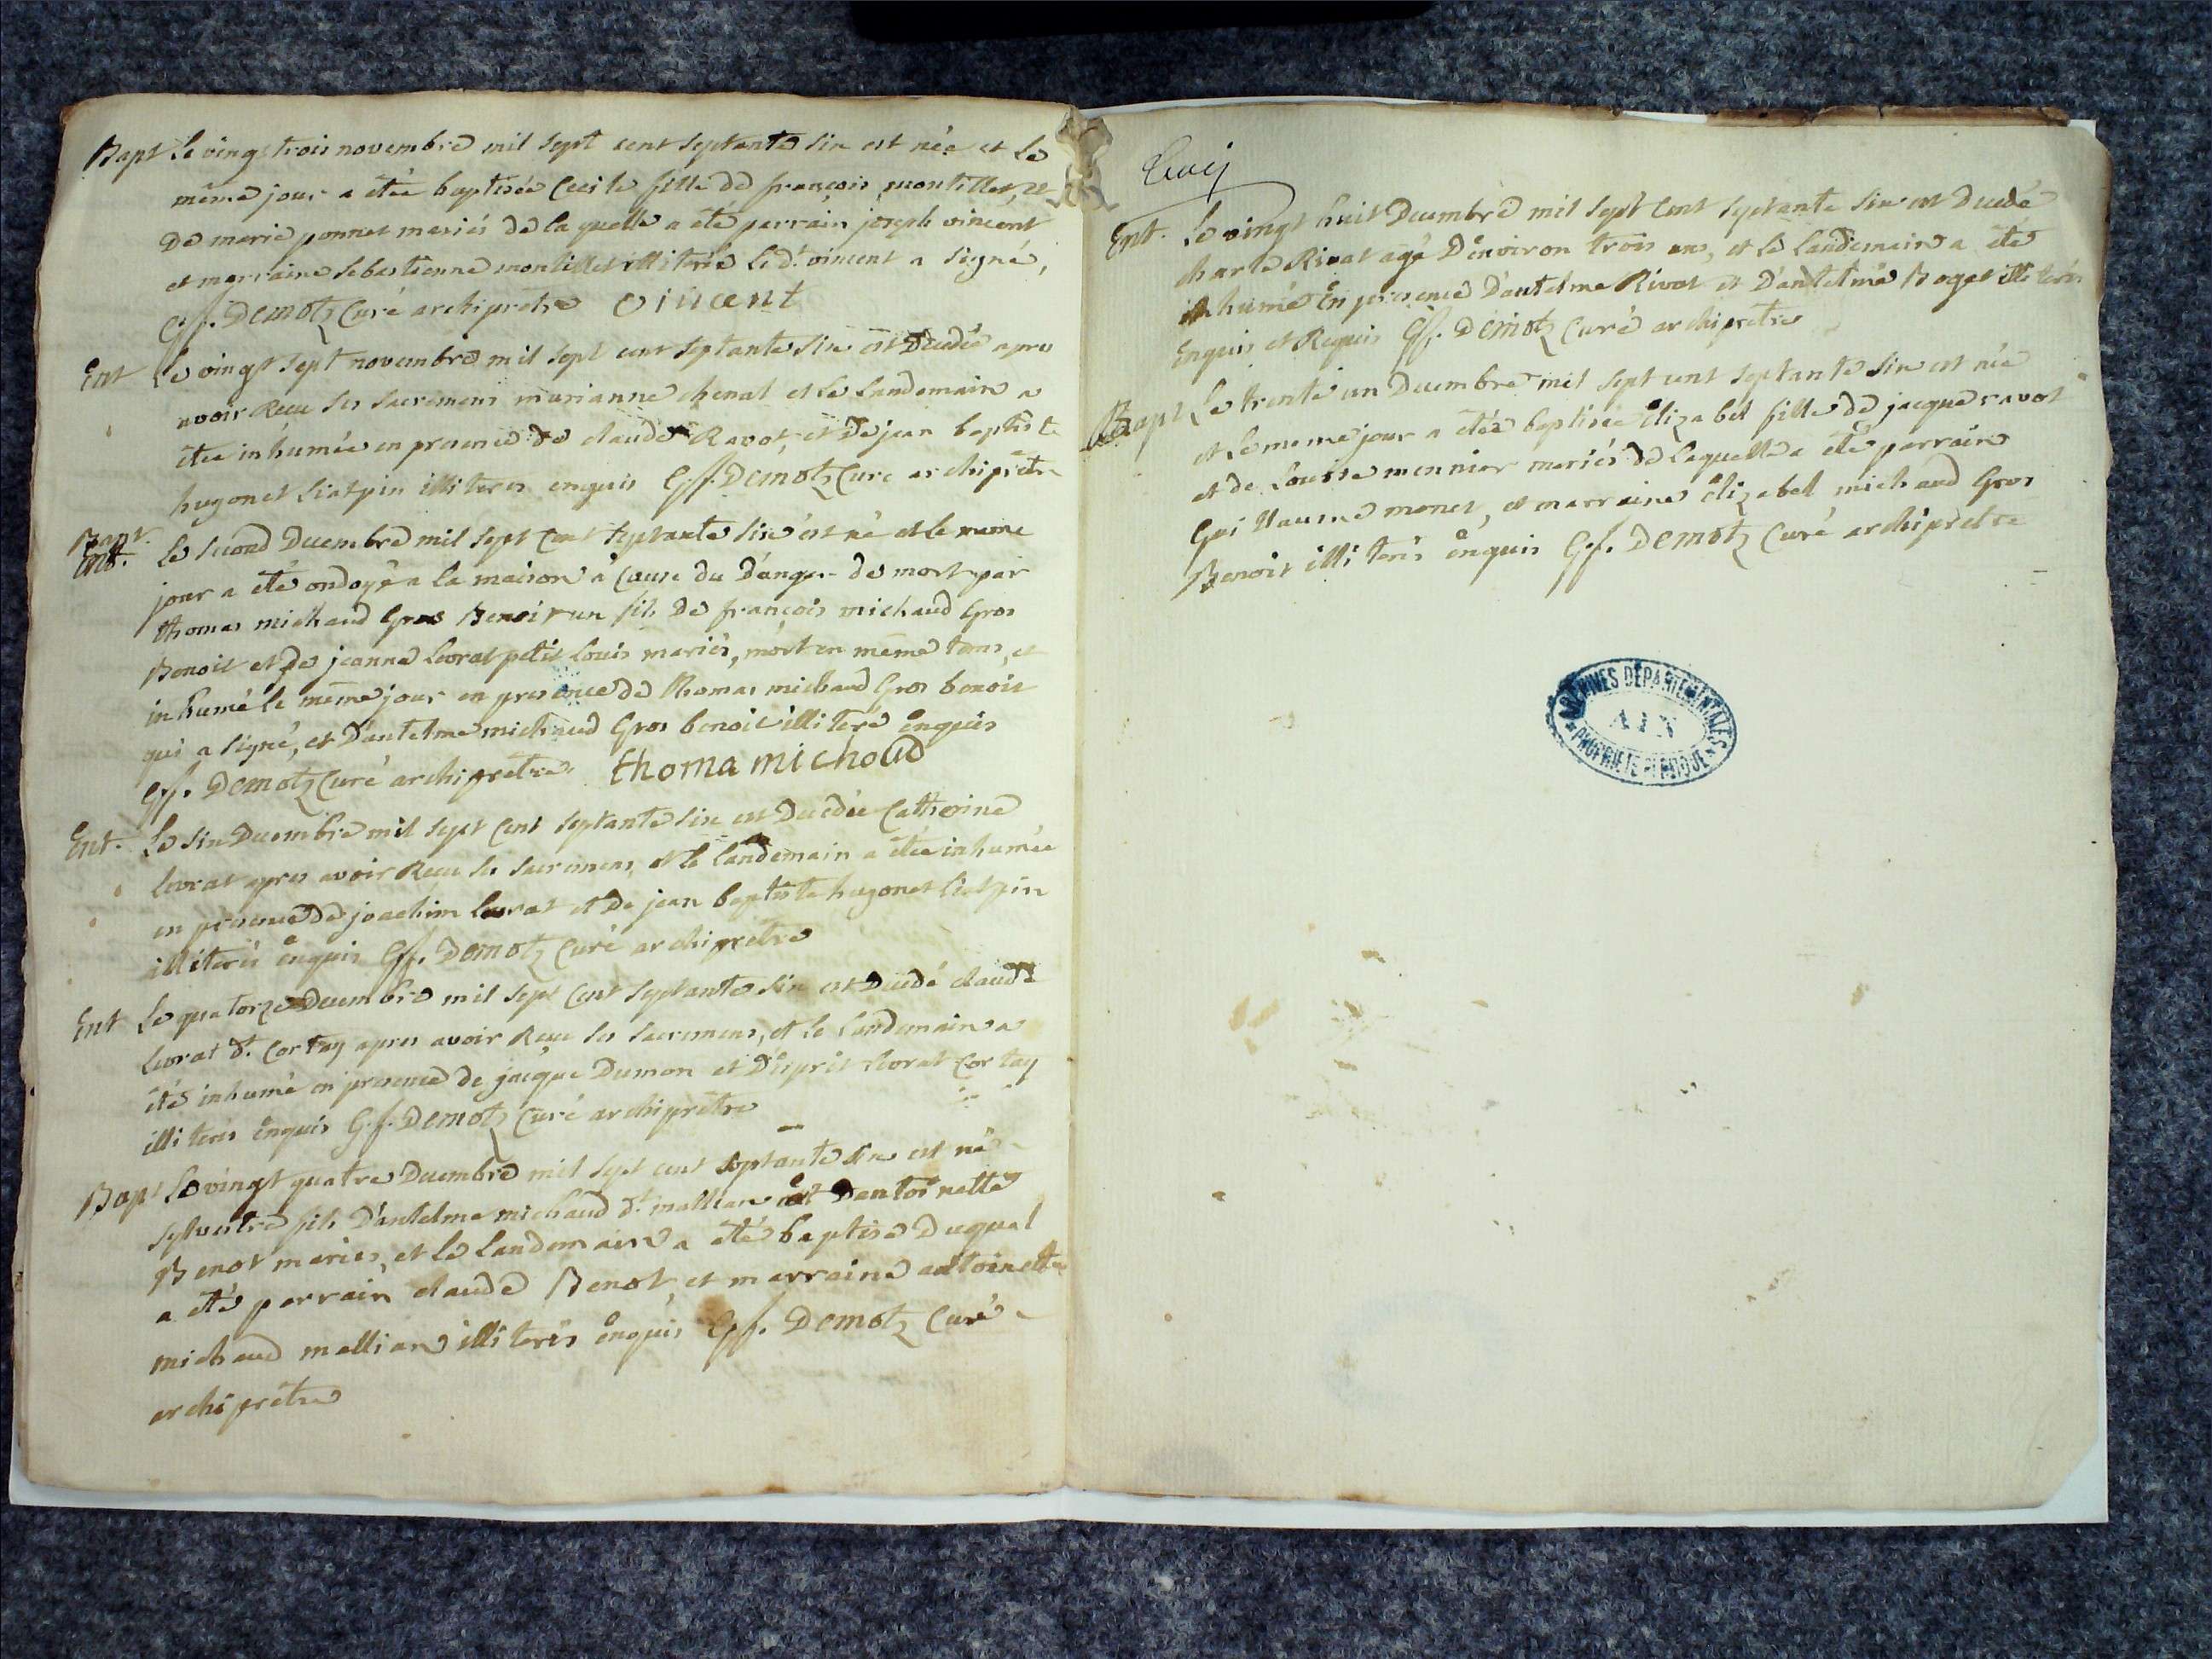 Bapt Le vingt trois novembre mil sept cent septante six est née et le
même jour a étée baptisée Cecile fille de françois montillet, et
De marie ponnet mariés de la quelle a été parrain joseph vincent
et marraine sebastienne montillet illiterée le dt. vincent a signé,
G.f. Demotz Curé archiprêtre vincent
Ent Le vingt sept novembre mil sept cent septante six est Decedée apres
avoir Recu ses sacremens marianne chenat et le landemain a
étée inhumée en presence de claude Ravot, et De jean baptiste
hugonet liatpin illiteres enquis G.f. Demotz Curé archiprêtre
Bapt.
Ent. Le second Decembre mil sept Cent septante six est né et le meme
jour a été ondoyé a la maison a Cause du Danger de mort par
thomas michaud Gros Benoit un fils De françois michaud Gros
Benoit et de jeanne levrat petit louis mariés, mort en même tems, et
inhumé le même jour en presence de thomas michaud Gros benoit
qui a signé, et D'antelme michaud Gros benoit illiteré enquis
G.f. Demotz Curé archiprêtre. thoma michoud
Ent. Le six Decembre mil sept Cent septante six est Decedée Catherine
levrat apres avoir Recu ses sacremens, et le landemain a étée inhumée
en presence de joachim levrat et De jean baptiste hugonet liatpin
illiterés enquis G.f. Demotz Curé archiprêtre
Ent Le quatorze Decembre mil sept Cent septante six est Decedé claude
levrat dt. Cortay apres avoir Recu ses sacremens, et le landemain a
été inhumé en presence de jacque Dumon et D'esprit levrat Cortay
illiterés enquis G.f. Demotz Curé archiprêtre
Bapt Le vingt quatre Decembre mil sept cent septante six est né
sylvestre fils D'antelme michaud dt. mallian et D'antoinette
Benot mariés, et le landemain a été baptisé Duquel
a été parrain claude Benot, et marraine antoinette
michaud mallian illiterés enquis G.f. Demotz Curé
archiprêtre
Ent. Le vingt huit Decembre mil sept Cent septante six est Decedé
charle Rivat agé D'environ trois ans, et le landemain a été
inhumé En presence D'antelme Rivat et D'antelme Boget illiterés
Enquis et Requis G.f. Demotz Curé archiprêtre
Bapt Le trente un Decembre mil sept cent septante six est née
et le meme jour a étée baptisée Elizabet fille de jacque ravot
et de Louise monnier mariés de laquelle a été parrain
Guillaume monet, et marraine Elizabet michaud Gros
Benoit illiterés enquis G.f. Demotz Curé archiprêtre
ARCHIVES DÉPARTEMENTALES
AIN
PROPRIÉTÉ PUBLIQUE